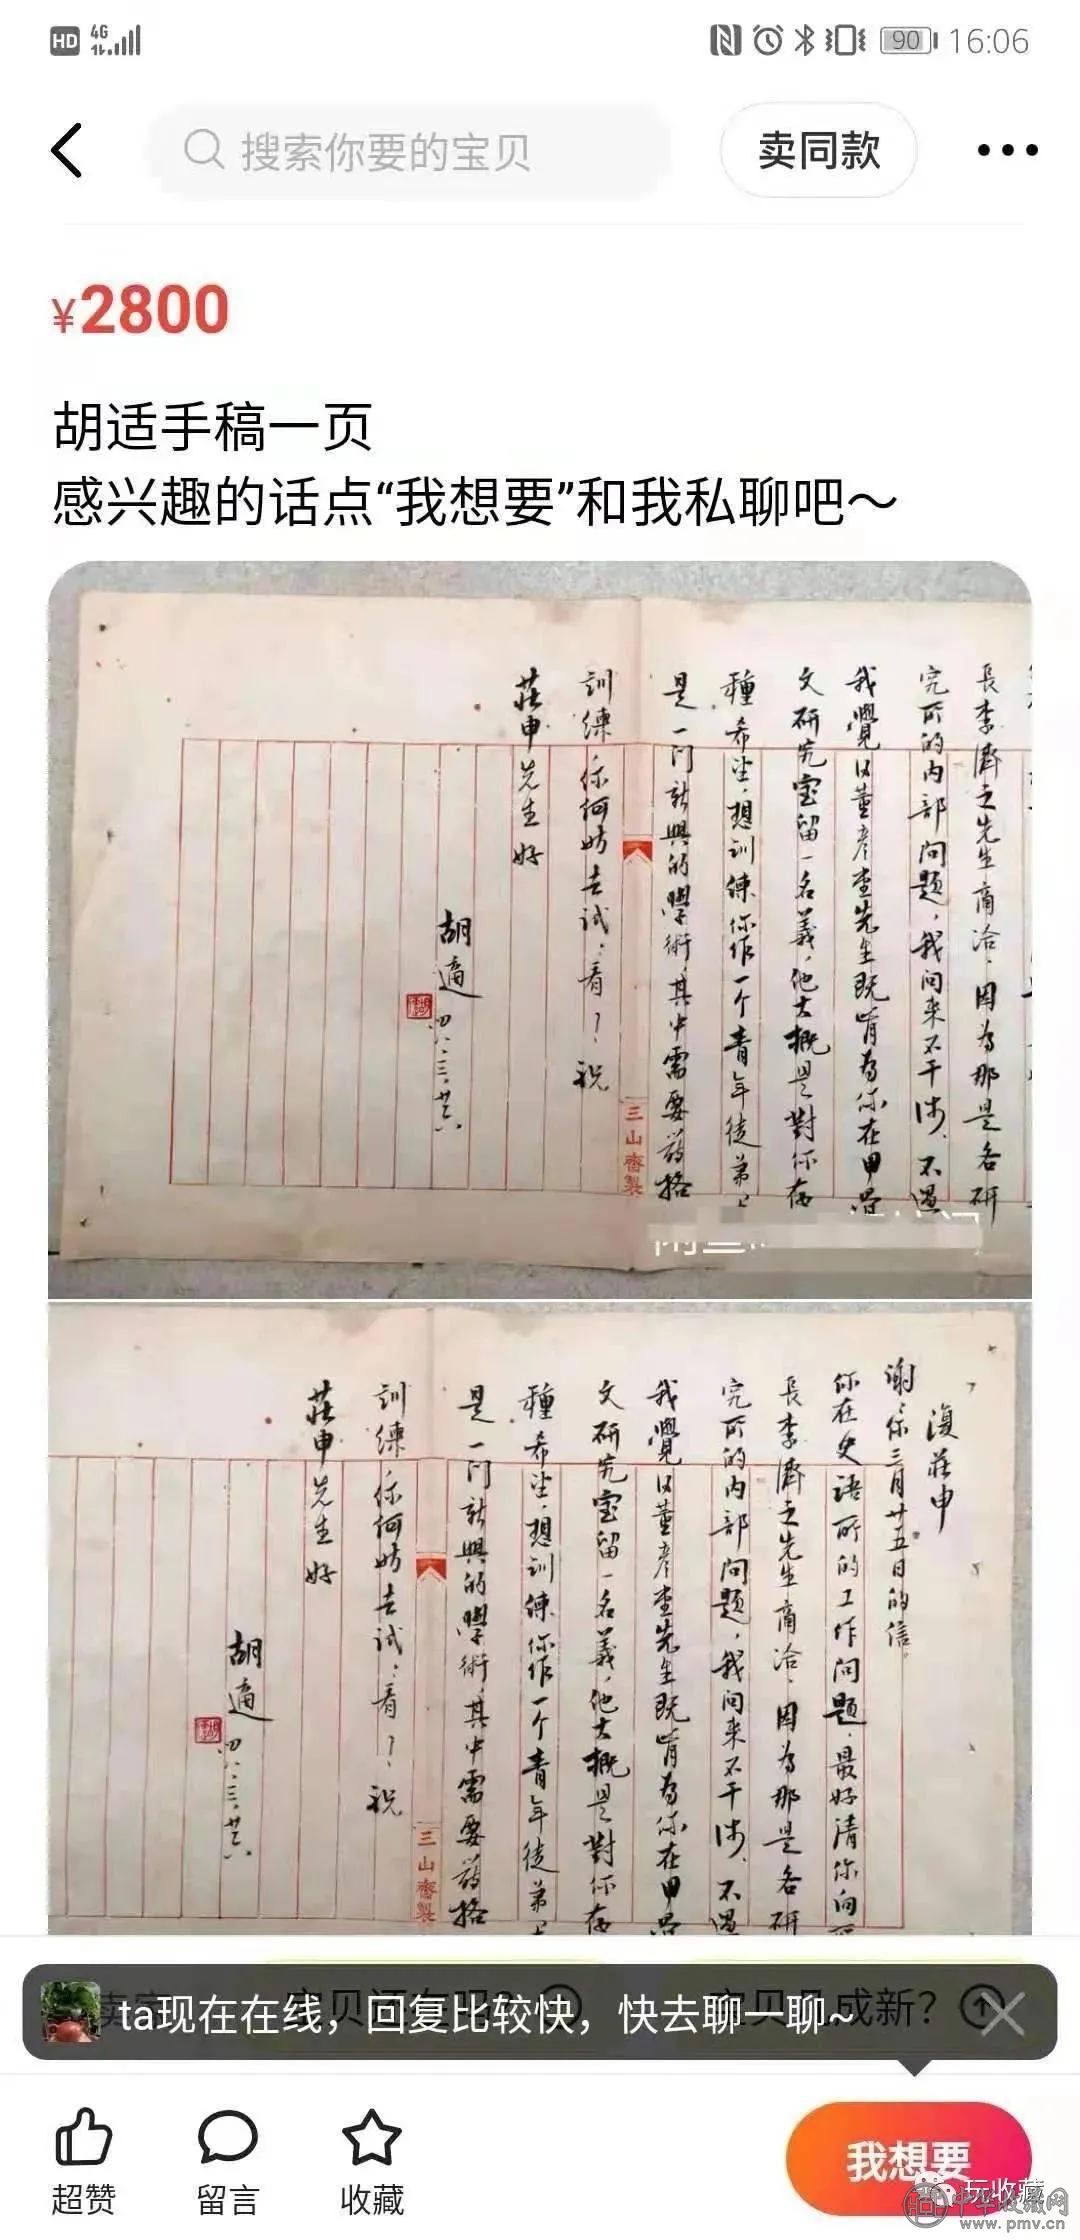 HD 4G 90 16:06
搜索你要的宝贝
卖同款
¥2800
胡适手稿一页
感兴趣的话点“我想要”和我私聊吧～
長李濟之先生商洽，因為那是各研
究所的内部問題，我向来不干涉、不過
我覺以董彦堂先生既肯為你在甲骨
文研究室留一名義，他大概是對你存
種希望，想訓練你作一个青年徒弟
是一门新興的學術，其中需要嚴格
訓練你何妨去試：看！祝
莊申先生好
胡適
四八、三、廿六
三山齋製
復莊申
謝：你三月廿五日的信。
你在史語所的工作問題，最好請你向所
長李濟之先生商洽，因為那是各研
究所的内部問題，我向来不干涉、不過
我覺以董彦堂先生既肯為你在甲骨
文研究室留一名義，他大概是對你存
種希望，想訓練你作一个青年徒弟
是一门新興的學術，其中需要嚴格
訓練你何妨去試：看！祝
莊申先生好
胡適
四八、三、廿六
三山齋製
ta现在在线，回复比较快，快去聊一聊~
超赞
留言
收藏
我想要
玩收藏
中华收藏网
www.pmv.cn